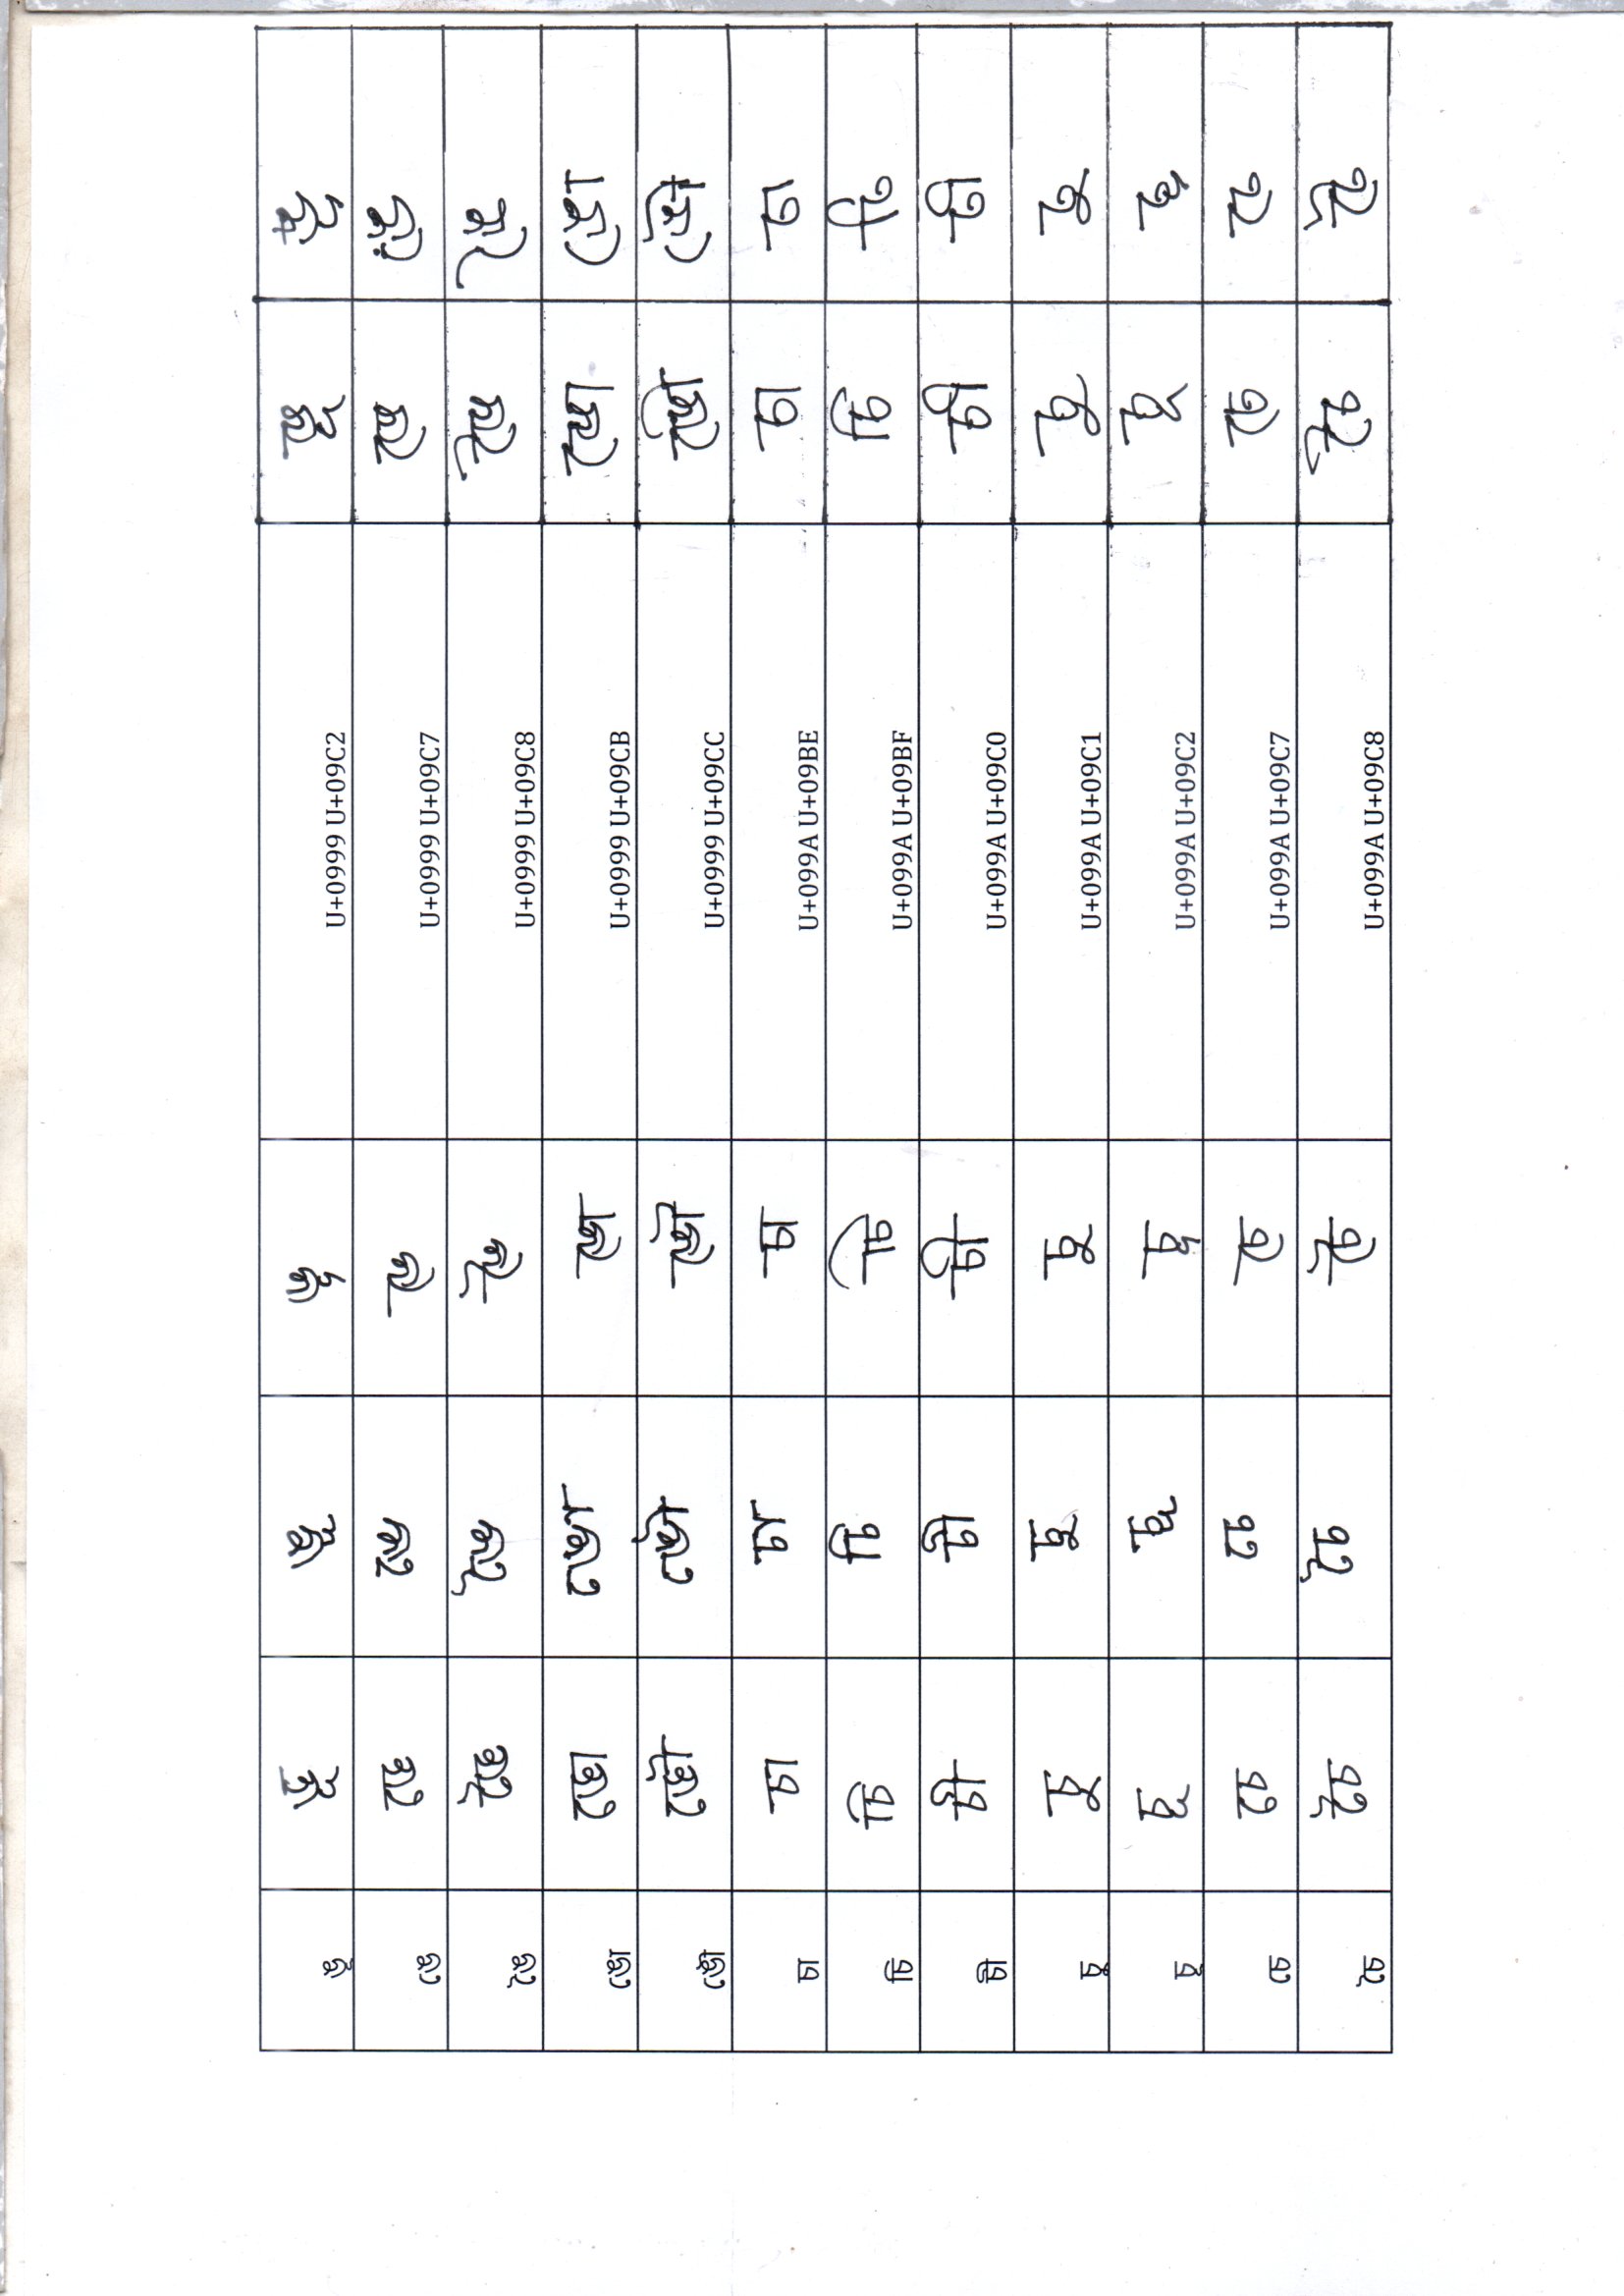 ঙূ ঙূ ঙূ ঙূ U+0999 U+09C2 ঙূ ঙূ
ঙে ঙে ঙে ঙে U+0999 U+09C7 ঙে ঙে
ঙৈ ঙৈ ঙৈ ঙৈ U+0999 U+09C8 ঙৈ ঙৈ
ঙো ঙো ঙো ঙো U+0999 U+09CB ঙো ঙো
ঙৌ ঙৌ ঙৌ ঙৌ U+0999 U+09CC ঙৌ ঙৌ
চা চা চা চা U+099A U+09BE চা চা
চি চি চি চি U+099A U+09BF চি চি
চী চী চী চী U+099A U+09C0 চী চী
চু চু চু চু U+099A U+09C1 চু চু
চূ চূ চূ চূ U+099A U+09C2 চূ চূ
চে চে চে চে U+099A U+09C7 চে চে
চৈ চৈ চৈ চৈ U+099A U+09C8 চৈ চৈ